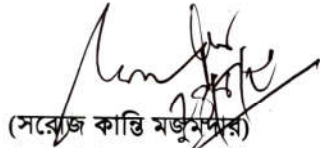 (সরোজ কান্তি মজুমদার)